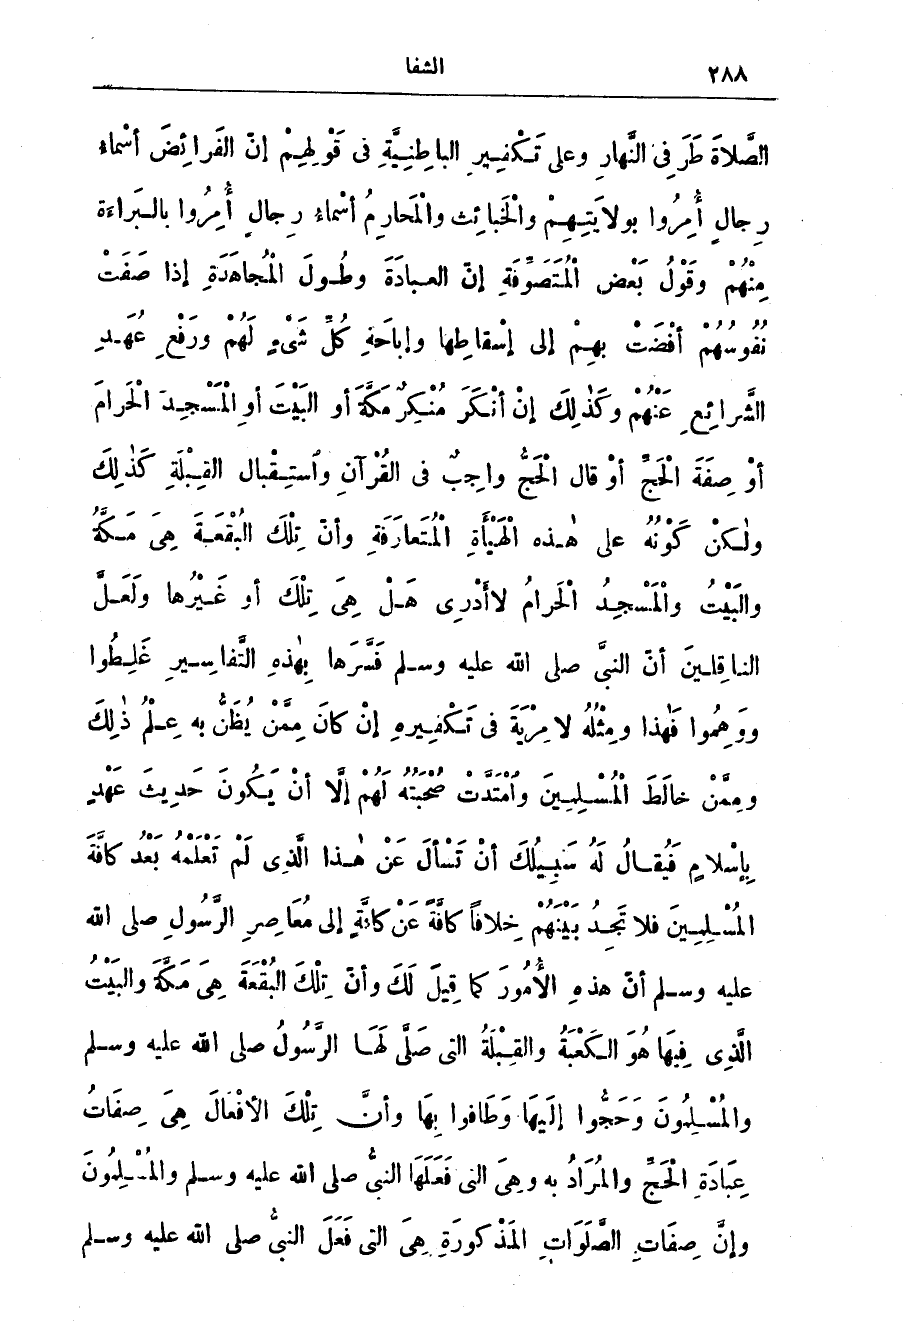 ٢٨٨
الشفا
الصَّلاَةَ طَرَفِىَ النَّهارِ وعلى تَكْفِيرِ الباطِنِيَّةِ فى قَوْلِهِمْ إنّ الفَرائِضَ أسْماءُ
رِجالٍ أُمِرُوا بولاَيَتِهِمْ والْخَبائِث والْمَحارِمُ أسْماءُ رِجالٍ أُمِرُوا بالبَراءَة
مِنْهُمْ وقَوْلُ بَعْضِ الْمُتَصَوِّفَةِ إنّ العبادَةَ وطُولَ الْمُجاهَدَةِ إذا صَفَتْ
نُفُوسُهُمْ أفْضَتْ بِهِمْ إلى إسْقاطِها وإباحَةِ كُلِّ شَىْءٍ لَهُمْ ورَفْعِ عُهَدِ
الشَّرائِعِ عَنْهُمْ وكَذٰلِكَ إنْ أنْكَرَ مُنْكِرٌ مَكَّةَ أو البَيْتَ أوِ الْمَسْجِدَ الْحَرامَ
أوْ صِفَةَ الْحَجِّ أوْ قال الْحَجُّ واجِبٌ فى القُرْآنِ واسْتِقْبال القِبْلَةِ كَذٰلِكَ
ولٰكنْ كَوْنُهُ على هٰذه الْهَيْأَةِ الْمُتَعارَفَةِ وأنّ تِلْكَ البُقْعَةَ هِىَ مَكَّةُ
والبَيْتُ والْمَسْجِدُ الْحَرامُ لاأدْرِى هَلْ هِىَ تِلْكَ أو غَيْرُها ولَعَلَّ
الناقِلِينَ أنّ النبيَّ صلى الله عليه وسلم فَسَّرَها بِهٰذِهِ التَّفاسِيرِ غَلِطُوا
ووَهِمُوا فَهٰذا ومِثْلُهُ لامِرْيَةَ فى تَكْفِيرِهِ إنْ كانَ مِمَّنْ يُظَنُّ به عِلْمُ ذٰلِكَ
ومِمَّنْ خالَطَ الْمُسْلِمِينَ وامْتَدَّتْ صُحْبَتُهُ لَهُمْ إلَّا أنْ يَكُونَ حَدِيثَ عَهْدٍ
بإسْلامٍ فَيُقالُ لَهُ سَبِيلُكَ أنْ تَسْألَ عَنْ هٰذا الَّذِى لَمْ تَعْلَمْهُ بَعْدُ كافَّةَ
المُسْلِمِينَ فلا تَجِدُ بَيْنَهُمْ خِلافاً كافَّةً عَنْ كافَّةٍ إلى مُعَاصِرِ الرَّسُولِ صلى الله
عليه وسلم أنّ هذهِ الأُمُورَ كما قِيلَ لَكَ وأنّ تِلْكَ البُقْعَةَ هِىَ مَكَّةَ والبَيْتُ
الَّذِى فِيهَا هُوَ الكَعْبَةُ والقِبْلَةُ التى صَلَّى لَهَا الرَّسُولُ صلى الله عليه وسلم
والمُسْلِمُونَ وَحَجُّوا إلَيهَا وَطَافوا بِهَا وأنَّ تِلْكَ الأفْعالَ هِىَ صِفَاتُ
عِبَادَةِ الْحَجِّ والمُرَادُ به وهِىَ التى فَعَلَهَا النبيُّ صلى الله عليه وسلم والمُسْلِمُونَ
وإنَّ صِفَاتِ الصَّلَوَاتِ المَذْكورَةِ هِىَ التى فَعَلَ النبيُّ صلى الله عليه وسلم